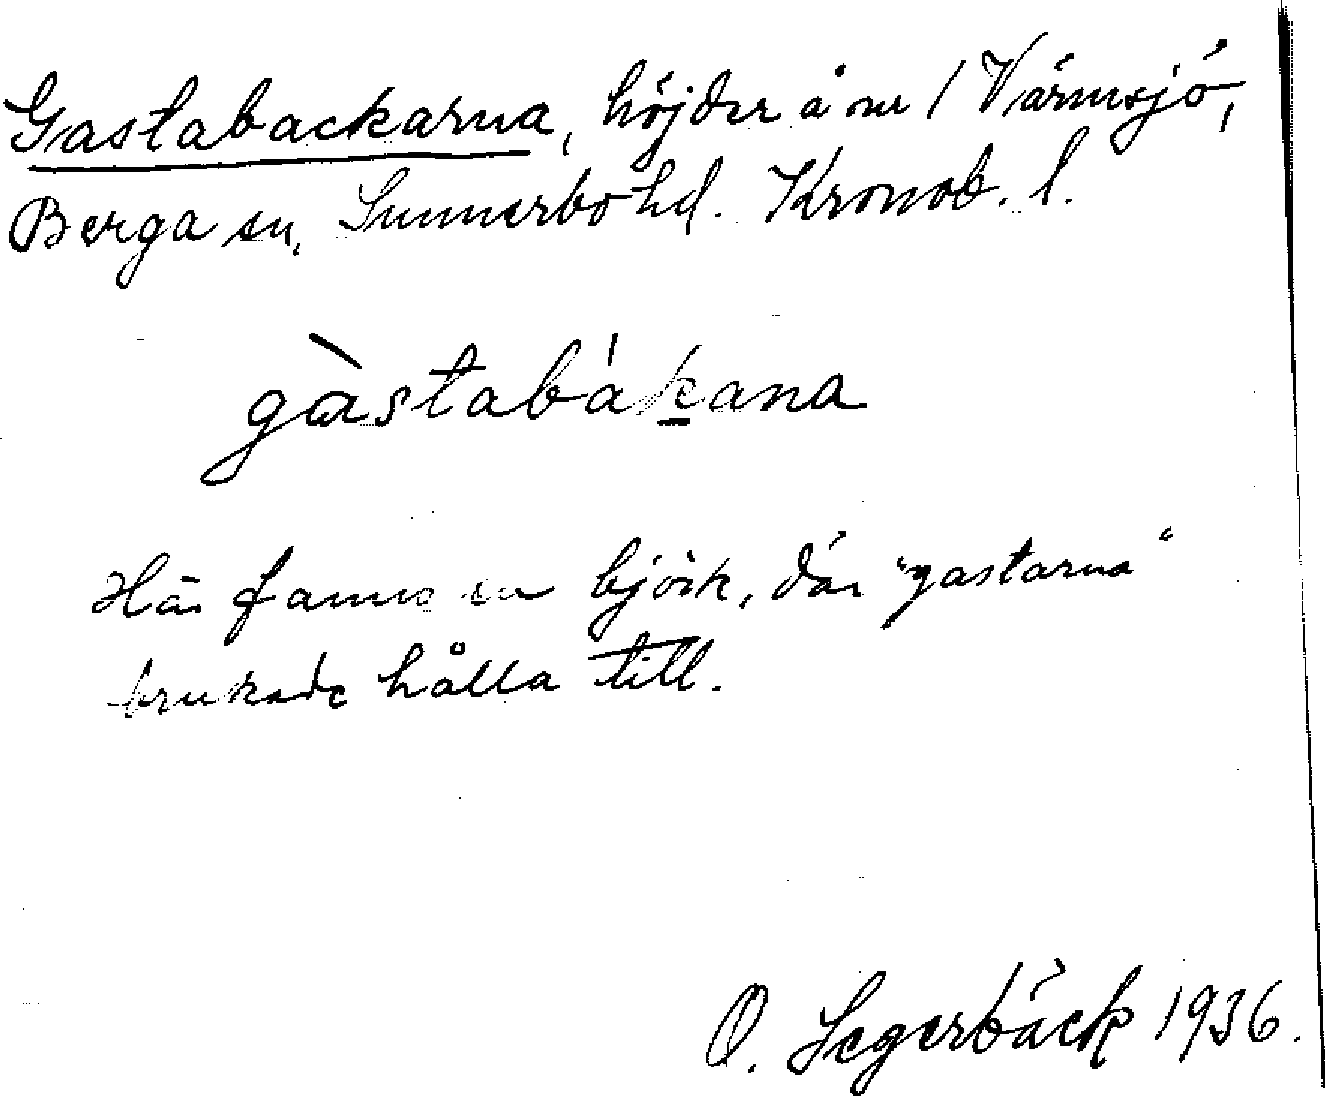 Gastabackarna, höjder å nr 1 Värmsjö,
Berga sn, Sunnerbo hd. Kronob. l.
gàstabákana
Här fanns en björk, där "gastarna"
brukade hålla till.
O. Segerbäck 1936.